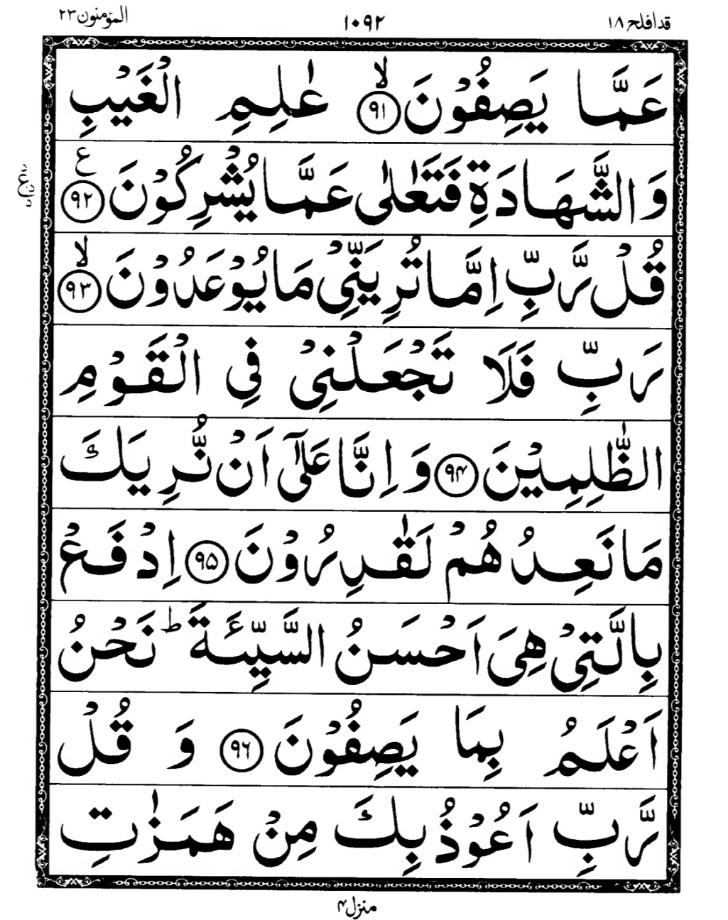 قدافلح ۱۸ ۱۰۹۲ المؤمنون ۲۳
عَمَّا يَصِفُوْنَ ۙ﴿۹۱﴾ عٰلِمِ الْغَيْبِ
وَالشَّهَادَةِ فَتَعٰلٰى عَمَّا يُشْرِكُوْنَ ﴿۹۲﴾ ع
قُلْ رَّبِّ اِمَّا تُرِيَنِّيْ مَا يُوْعَدُوْنَ ۙ﴿۹۳﴾
رَبِّ فَلَا تَجْعَلْنِيْ فِي الْقَوْمِ
الظّٰلِمِيْنَ ﴿۹۴﴾ وَ اِنَّا عَلٰٓى اَنْ نُّرِيَكَ
مَا نَعِدُهُمْ لَقٰدِرُوْنَ ﴿۹۵﴾ اِدْفَعْ
بِالَّتِيْ هِيَ اَحْسَنُ السَّيِّئَةَ ؕ نَحْنُ
اَعْلَمُ بِمَا يَصِفُوْنَ ﴿۹۶﴾ وَ قُلْ
رَّبِّ اَعُوْذُ بِكَ مِنْ هَمَزٰتِ
منزل ۴